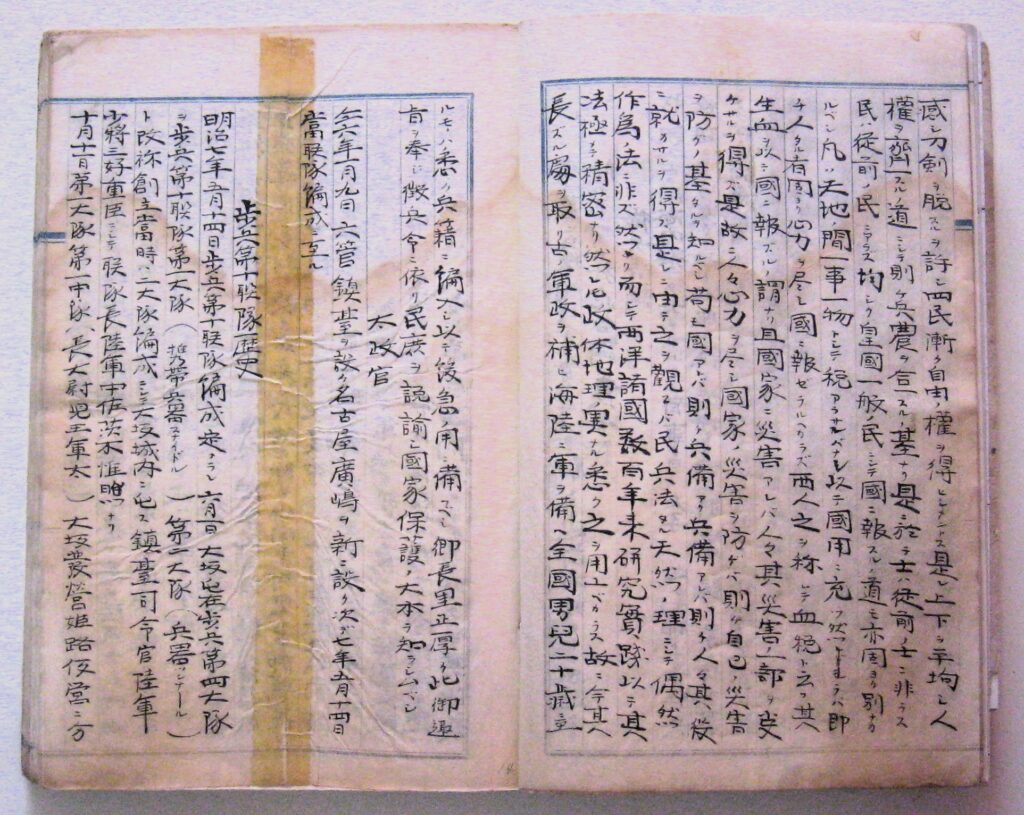 感シ刀剣ヲ脱スルヲ許シ四民漸ク自由ノ權ヲ得セシメントス是レ上下ヲ平均シ人
權ヲ齊一ニスル道ニシテ則チ兵農ヲ合一ニスル基ナリ是ニ於テ士ハ従前ノ士ニ非ラス
民ハ従前ノ民ニアラス均シク皇國一般ノ民ニシテ國ニ報スルノ道モ亦固ヨリ別ナカ
ルベシ凡ソ天地ノ間一事一物トシテ税アラサルハナシ以テ國用ニ充ツ然ラバ即
チ人タル者固ヨリ心力ヲ尽シ國ニ報セサルヘカラズ西人之ヲ称シテ血税トス其
生血ヲ以テ國ニ報ズルノ謂ナリ且國家ニ災害アレバ人々其災害ノ一部ヲ受
ケサルヲ得ズ是故ニ人々心力ヲ尽シ國家ノ災害ヲ防ケバ則チ自己ノ災害
ヲ防グノ基タルヲ知ルベシ苟モ國アレバ則チ兵備アリ兵備アレバ則チ人々其ノ役
ニ就カサルヲ得ズ是レニ由テ之ヲ觀レバ民兵ノ法タル天然ノ理ニシテ偶然
作為ノ法ニ非ズ然ルヨリ而シテ西洋諸國数百年来研究實践以テ其
法極メテ精密ナリ然レ共政体地理異ナル悉ク之ヲ用ユベカラス故ニ今其
長ズル處ヲ取リ古ノ軍政ヲ補ヒ海陸ニ軍ヲ備ヘ全國男兒二十歳ニ至
ルモノハ悉ク兵籍ニ編入シ以テ後急ノ用ニ備フベシ郷長里正厚ク此御趣
旨ヲ奉ジ徴兵令ニ依リ民庶ヲ説諭シ國家保護ノ大本ヲ知ラシムベシ
太政官
仝六年一月九日六管鎮臺ヲ設ク名古屋廣嶋ヲ新ニ設ク次テ七年五月十四日
當聯隊編成ニ至ル
歩兵第十聯隊歴史
明治七年五月十四日歩兵第十聯隊編成 六月一日大坂屯在歩兵第四大隊
ヲ歩兵第十聯隊第一大隊（携帯兵器スナイドル）第二大隊（兵器ツンナール）
ト改称創立當時ハ二大隊編成ニシテ大坂城内ニ屯ス鎮臺司令官陸軍
少将三好重臣ニシテ聯隊長陸軍中佐茨木惟昭ナリ
十月十日第一大隊第一中隊（長大尉児玉軍太）大坂発営姫路仮営ニ方